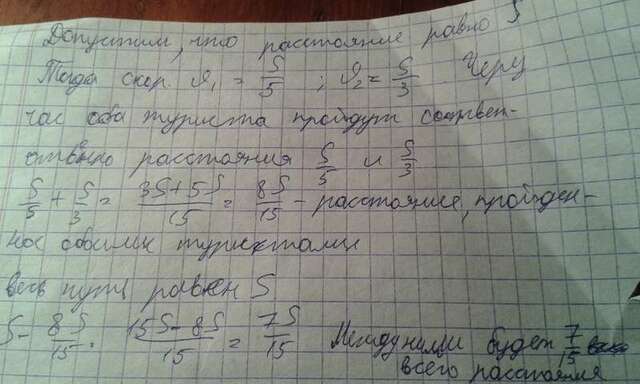 Допустим, что расстояние равно S
Тогда скор. V₁ = S/5 ; V₂ = S/3 Через
час оба туриста пройдут соответ-
ственно расстояния S/5 и S/3
S/5 + S/3 = (3S+5S)/15 = 8S/15 - расстояние, пройден-
ное обоими туристами
весь путь равен S
S - 8S/15 = (15S-8S)/15 = 7S/15 Между ними будет 7/15
всего расстояния